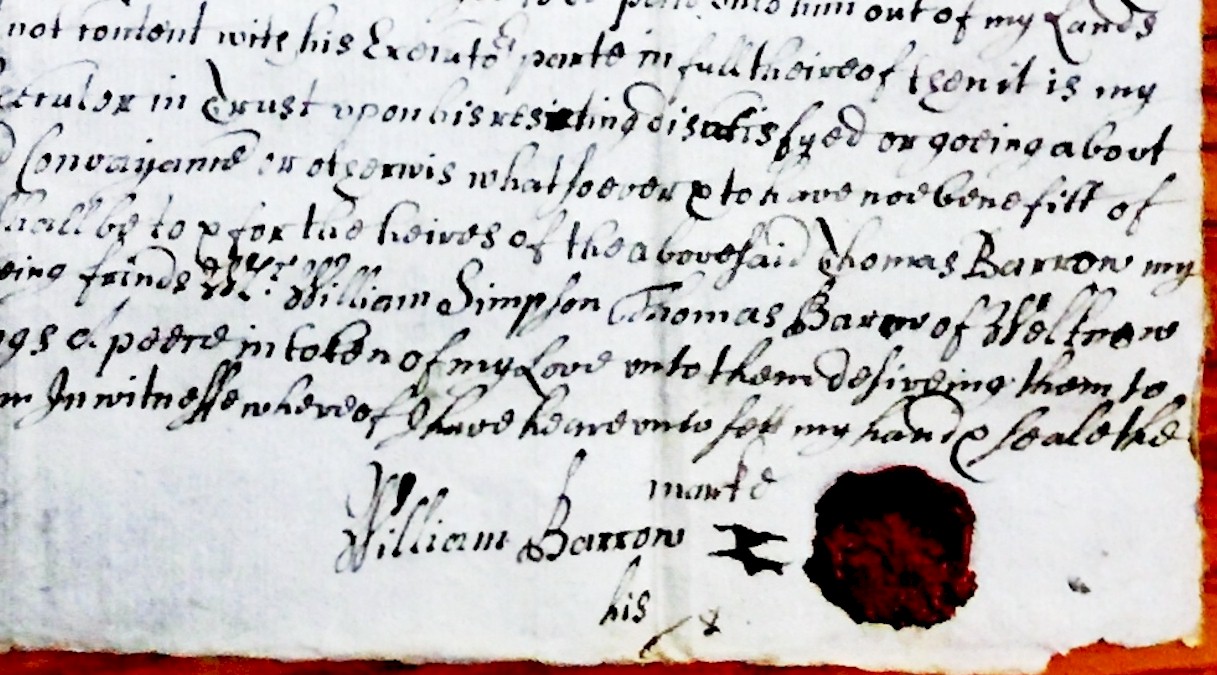 unto him out of my Lands
not Content with his Executors parte in full theireof then it is my
ecutor in Trust upon his resisting disatisfyed or goeing about
Convaijance or otherwis whatsoever & to have noe benefitt of
shall be to & for the heires of the abovesaid Thomas Barrow my
eing frinds Mr. William Simpson Thomas Barow of Weltnow
ngs A peece in token of my Love unto them desireing them to
m In witnesse whereof I have heare unto sett my hand & seale the
marke
William Barrow
his